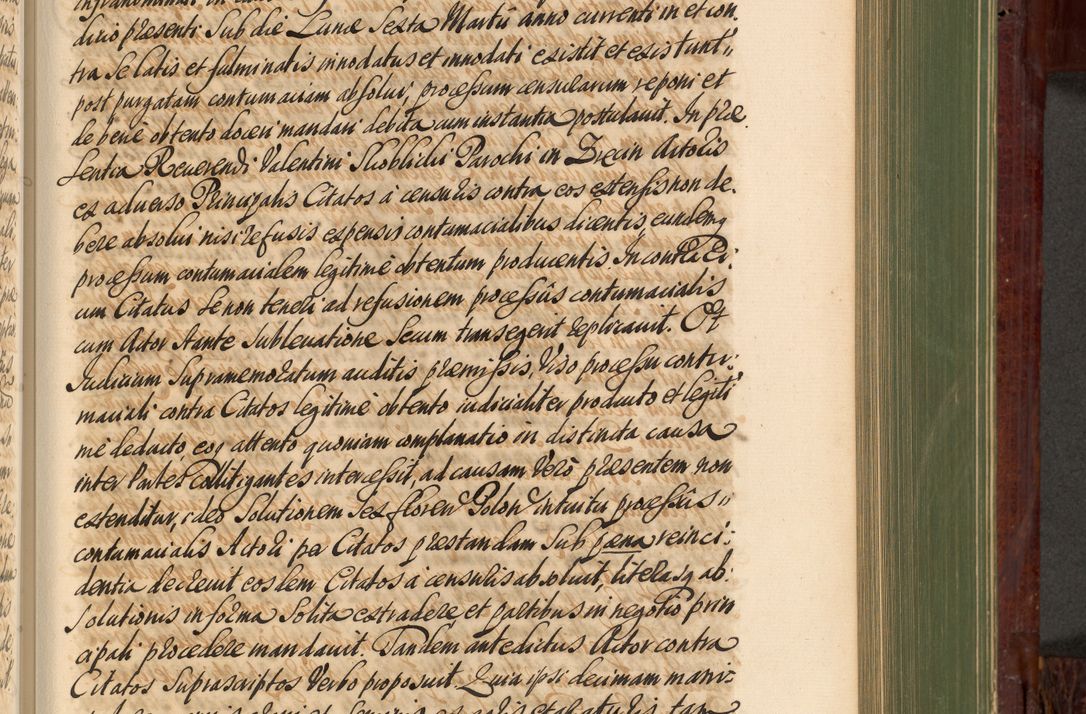 dicio præsenti Sub die Lunæ Sexta Martii anno currenti in et con,
tra Se latis et fulminatis innodatus et innodati existit et existunt,,
post purgatam contumaciam absolui, processum censurarum reponi et
de bene obtento doceri mandari debita cum instantia postulauit. In præ
sentia Reuerendi Valentini Skoblicki Parochi in Zrecin Actoris
ex aduerso Principalis Citatos à censuris contra eos extensis non de,
bere absolui nisi refusis expensis contumacialibus dicentis, eundemq
processum contumacialem legitimè obtentum producentis. In contra Ci,
cum Citatus Se non teneri ad refusionem processûs contumacialis
cum Actor stante Subleuatione Secum transegerit replicauit. Et
Judicium Supramemoratum auditis præmissis, Viso processu contu:
maciali contra Citatos legitimè obtento iudicialiter producto et legiti
mè deducto, eoq attento quoniam complanatio in distincta causa
inter Partes Collitigantes intercessit, ad causam Verò præsentem non
extenditur, ideo Solutionem Sex floren Polon intuitu processûs,,
contumacialis Actori per Citatos præstandam Sub pæna reinci:
dentia decreuit eosdem Citatos à censuris absoluit, literasq ab:
solutionis in forma Solita extradere et partibus in negotio prin
cipali procedere mandauit. Tandem antedictus Actor contra
Citatos Suprascriptos Verbo proposuit. Quia ipsi decimam mani: